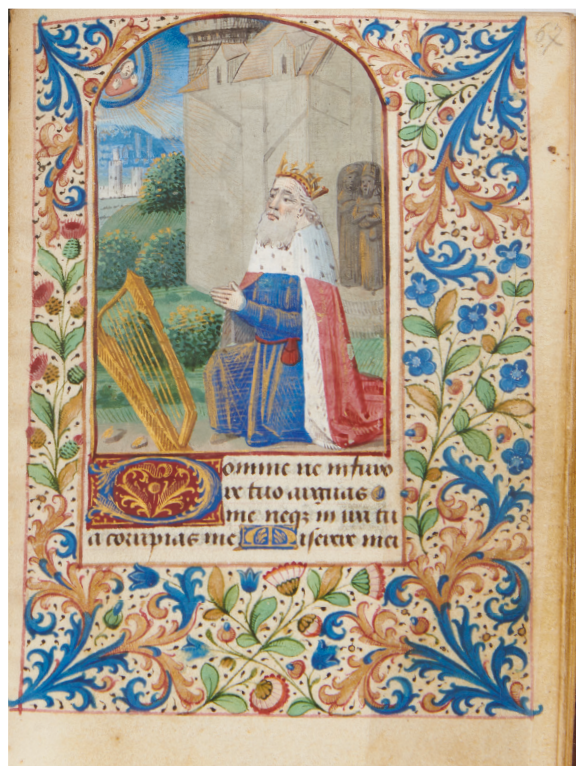 Domine ne in furo
re tuo arguas
me neqz in ira tu
a corripias me Miserere mei